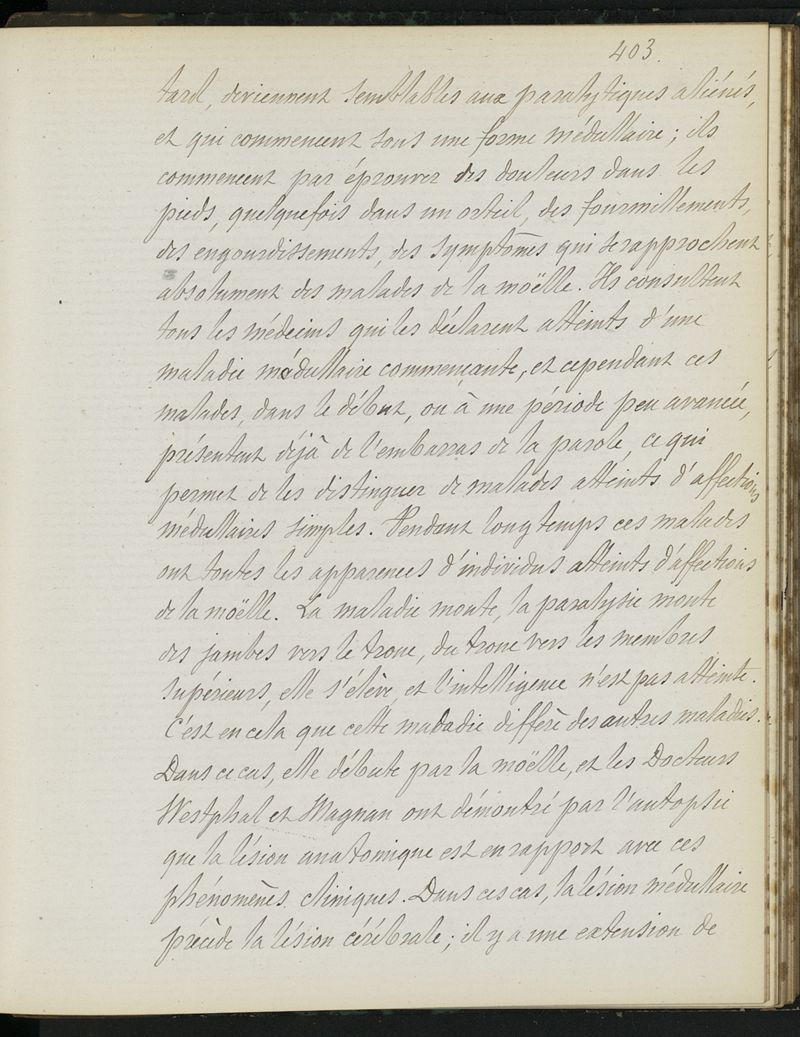 403.
tard, deviennent semblables aux paralytiques aliénés,
et qui commencent sous une forme médullaire ; ils
commencent par éprouver des douleurs dans les
pieds, quelquefois dans un orteil, des fourmillements,
des engourdissements, des symptômes qui se rapprochent
absolument des malades de la moëlle. Ils consultent
tous les médecins qui les déclarent atteints d'une
maladie médullaire commençante, et cependant ces
malades, dans le début, ou à une période peu avancée,
présentent déjà de l'embarras de la parole, ce qui
permet de les distinguer de malades atteints d'affections
médullaires simples. Pendant longtemps ces malades
ont toutes les apparences d'individus atteints d'affections
de la moëlle. La maladie monte, la paralysie monte
des jambes vers le tronc, du tronc vers les membres
supérieurs, elle s'élève, et l'intelligence n'est pas atteinte.
C'est en cela que cette maladie diffère des autres maladies.
Dans ce cas, elle débute par la moëlle, et les Docteurs
Westphal et Magnan ont démontré par l'autopsie
que la lésion anatomique est en rapport avec ces
phénomènes cliniques. Dans ces cas, la lésion médullaire
précède la lésion cérébrale ; il y a une extension de